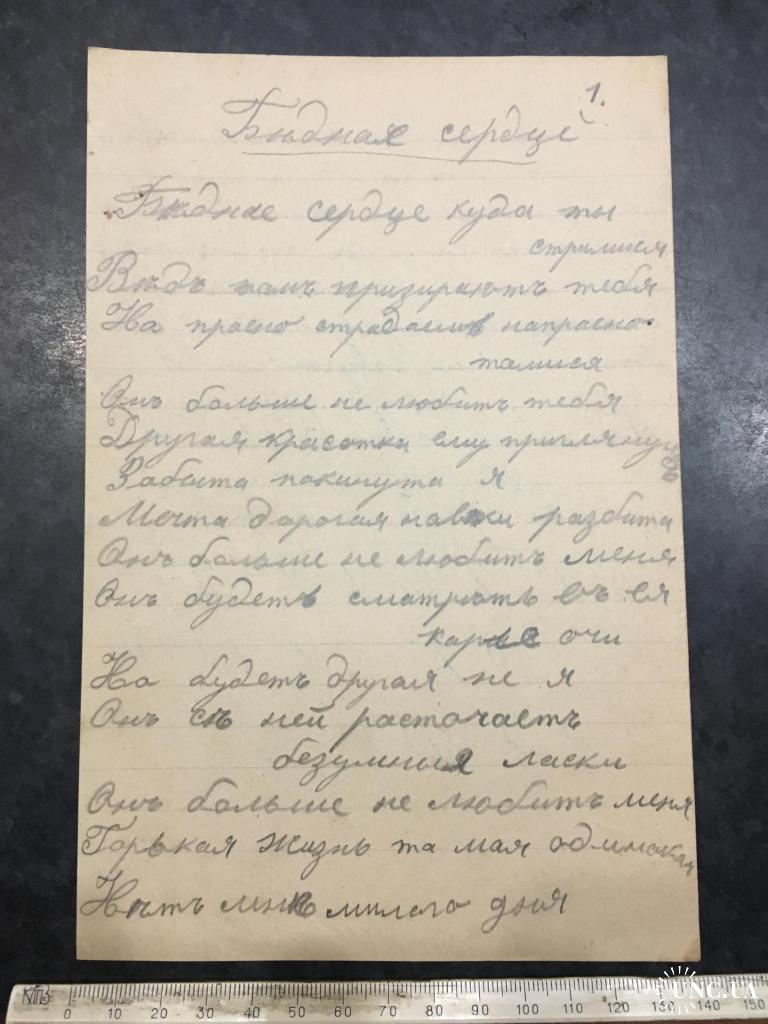 1.
Бѣдная сердце
Бѣдное сердце куда ты
стримися
Вѣдъ тамъ призираютъ тебя
На прасно страдаешь напрасно
талися
Онъ больше не любитъ тебя
Другая красотка ему приглянулась
Забыта покинута я
Мечта дорогая навѣки разбита
Онъ больше не любитъ меня
Онъ будетъ сматрѣть въ ея
карые очи
Но будетъ другая не я
Онъ съ ней расточаетъ
безумныя ласки
Онъ больше не любитъ меня
Горькая жизнь та мая одинокая
Нѣтъ мнѣ милого дня
МПЗ 0 10 20 30 40 50 60 70 80 90 100 110 120 130 140 150
UNC.UA